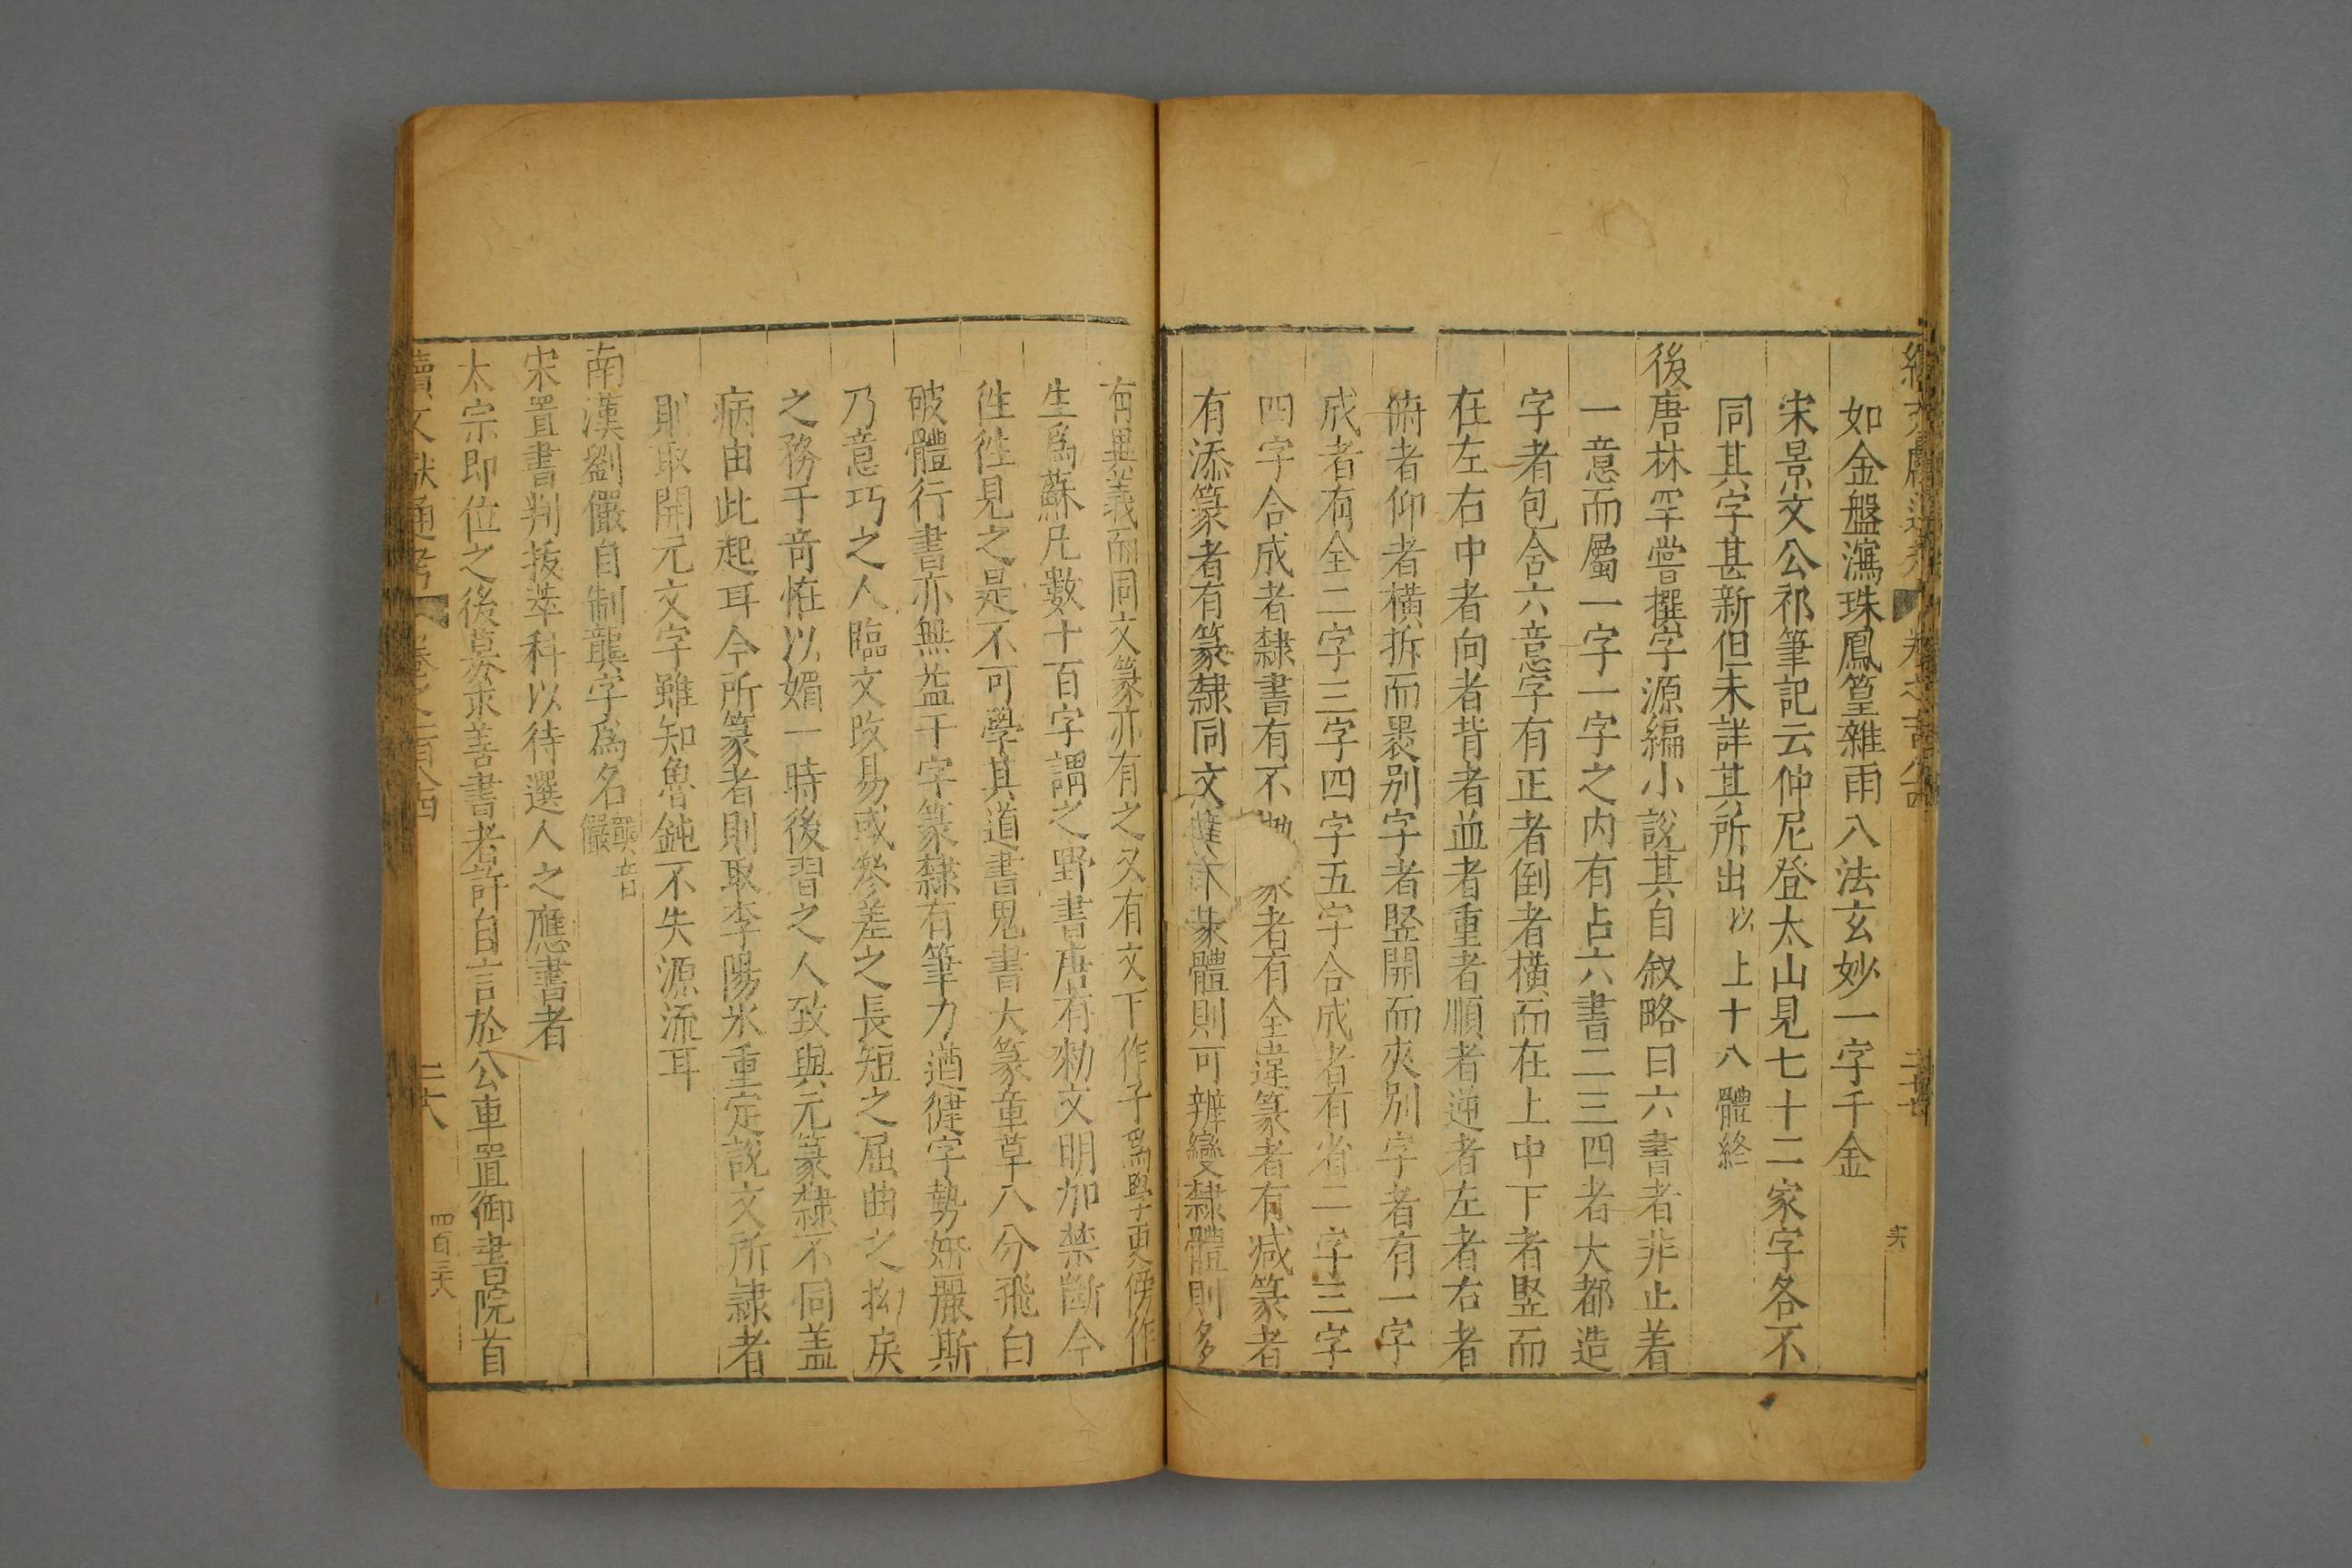 如金盤瀉珠鳳篁雜雨八法玄妙一字千金
宋景文公祁筆記云仲尼登太山見七十二家字各不
同其字甚新但未詳其所出以上十八體終
後唐林罕嘗撰字源編小說其自叙略曰六書者非止着
一意而屬一字一字之內有占六書二三四者大都造
字者包含六意字有正者倒者橫而在上中下者竪而
在左右中者向者背者並者重者順者逆者左者右者
俯者仰者橫拆而褁别字者竪開而夾別字者有一字
成者有全二字三字四字五字合成者有省二字三字
四字合成者隸書有不 者有全違篆者有减篆者
有添篆者有篆隸同文 篆體則可辨變隸體則多
有異義而同文篆亦有之又有文下作子爲學更傍作
生爲蘇凡數十百字謂之野書唐有勑文明加禁斷今
徃徃見之是不可學其道書鬼書大篆章草八分飛白
破體行書亦無益干字篆隸有筆力遒健字勢妍麗斯
乃意巧之人臨文改易或參差之長短之屈曲之拗戾
之務于竒怪以媚一時後習之人致與元篆隸不同盖
病由此起耳今所篆者則取李陽氷重定說文所隷者
則取開元文字雖知魯鈍不失源流耳
南漢劉儼自制龑字爲名龑音儼
宋置書判拔萃科以待選人之應書者
太宗即位之後募求善書者許自言於公車置御書院首
續文献通考 卷之一百八四 二十八 四百三六